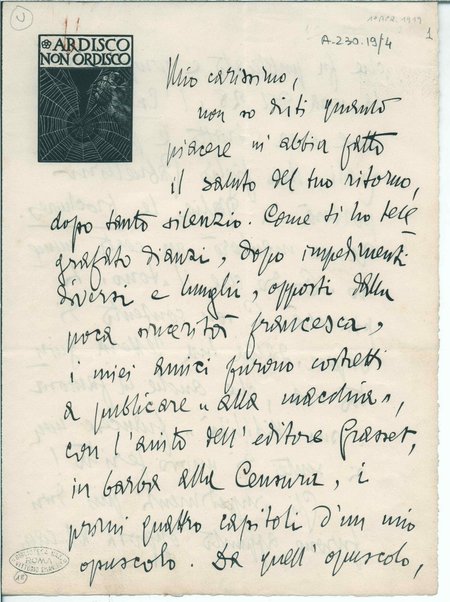 1° APR. 1919
1
A.230.19/4
ARDISCO
NON ORDISCO
Mio carissimo,
non so dirti quanto
piacere m'abbia fatto
il saluto del tuo ritorno,
dopo tanto silenzio. Come ti ho tele-
grafato dianzi, dopo impedimenti
diversi e lunghi, opposti dalla
poca sincerità francesca,
i miei amici furono costretti
a publicare "alla macchia",
con l'aiuto dell'editore Grasset,
in barba alla Censura, i
primi quattro capitoli d'un mio
opuscolo. Da quell'opuscolo,
ROMA
VITTORIO EMANUELE